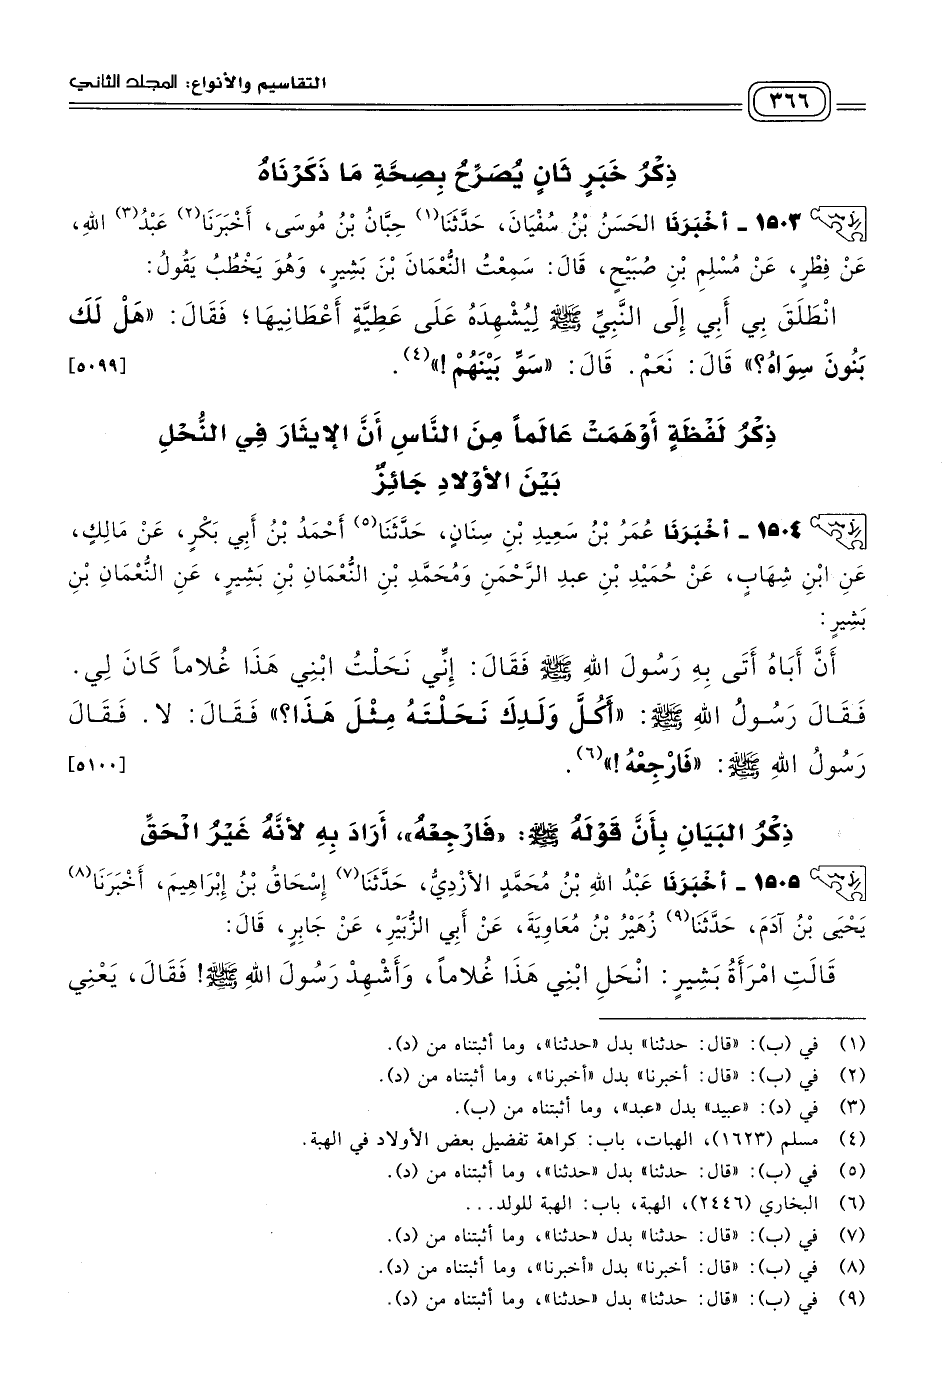 التقاسيم والأنواع: المجلد الثاني
٣٦٦
ذِكْرُ خَبَرٍ ثَانٍ يُصَرِّحُ بِصِحَّةِ مَا ذَكَرْنَاهُ
١٥٠٣ ـ أخْبَرَنَا الحَسَنُ بْنُ سُفْيَانَ، حَدَّثَنَا(١) حِبَّانُ بْنُ مُوسَى، أَخْبَرَنَا(٢) عَبْدُ(٣) اللهِ،
عَنْ فِطْرٍ، عَنْ مُسْلِمِ بْنِ صُبَيْحٍ، قَالَ: سَمِعْتُ النُّعْمَانَ بْنَ بَشِيرٍ، وَهُوَ يَخْطُبُ يَقُولُ:
انْطَلَقَ بِي أَبِي إِلَى النَّبِيِّ ﷺ لِيُشْهِدَهُ عَلَى عَطِيَّةٍ أَعْطَانِيهَا؛ فَقَالَ: «هَلْ لَكَ
بَنُونَ سِوَاهُ؟» قَالَ: نَعَمْ. قَالَ: «سَوِّ بَيْنَهُمْ!»(٤). [٥٠٩٩]
ذِكْرُ لَفْظَةٍ أَوْهَمَتْ عَالَماً مِنَ النَّاسِ أَنَّ الإيثَارَ فِي النُّحْلِ
بَيْنَ الأَوْلادِ جَائِزٌ
١٥٠٤ ـ أخْبَرَنَا عُمَرُ بْنُ سَعِيدِ بْنِ سِنَانٍ، حَدَّثَنَا(٥) أَحْمَدُ بْنُ أَبِي بَكْرٍ، عَنْ مَالِكٍ،
عَنِ ابْنِ شِهَابٍ، عَنْ حُمَيْدِ بْنِ عبدِ الرَّحْمَنِ وَمُحَمَّدِ بْنِ النُّعْمَانِ بْنِ بَشِيرٍ، عَنِ النُّعْمَانِ بْنِ
بَشِيرٍ:
أَنَّ أَبَاهُ أَتَى بِهِ رَسُولَ اللهِ ﷺ فَقَالَ: إِنِّي نَحَلْتُ ابْنِي هَذَا غُلاماً كَانَ لِي.
فَقَالَ رَسُولُ اللهِ ﷺ: «أَكُلَّ وَلَدِكَ نَحَلْتَهُ مِثْلَ هَذَا؟» فَقَالَ: لا. فَقَالَ
رَسُولُ اللهِ ﷺ: «فَارْجِعْهُ!»(٦). [٥١٠٠]
ذِكْرُ البَيَانِ بِأَنَّ قَوْلَهُ ﷺ: «فَارْجِعْهُ»، أَرَادَ بِهِ لأَنَّهُ غَيْرُ الْحَقِّ
١٥٠٥ ـ أخْبَرَنَا عَبْدُ اللهِ بْنُ مُحَمَّدٍ الأَزْدِيُّ، حَدَّثَنَا(٧) إِسْحَاقُ بْنُ إِبْرَاهِيمَ، أَخْبَرَنَا(٨)
يَحْيَى بْنُ آدَمَ، حَدَّثَنَا(٩) زُهَيْرُ بْنُ مُعَاوِيَةَ، عَنْ أَبِي الزُّبَيْرِ، عَنْ جَابِرٍ، قَالَ:
قَالَتِ امْرَأَةُ بَشِيرٍ: انْحَلِ ابْنِي هَذَا غُلاماً، وَأَشْهِدْ رَسُولَ اللهِ ﷺ! فَقَالَ، يَعْنِي
(١) في (ب): «قال: حدثنا» بدل «حدثنا»، وما أثبتناه من (د).
(٢) في (ب): «قال: أخبرنا» بدل «أخبرنا»، وما أثبتناه من (د).
(٣) في (د): «عبيد» بدل «عبد»، وما أثبتناه من (ب).
(٤) مسلم (١٦٢٣)، الهبات، باب: كراهة تفضيل بعض الأولاد في الهبة.
(٥) في (ب): «قال: حدثنا» بدل «حدثنا»، وما أثبتناه من (د).
(٦) البخاري (٢٤٤٦)، الهبة، باب: الهبة للولد...
(٧) في (ب): «قال: حدثنا» بدل «حدثنا»، وما أثبتناه من (د).
(٨) في (ب): «قال: أخبرنا» بدل «أخبرنا»، وما أثبتناه من (د).
(٩) في (ب): «قال: حدثنا» بدل «حدثنا»، وما أثبتناه من (د).